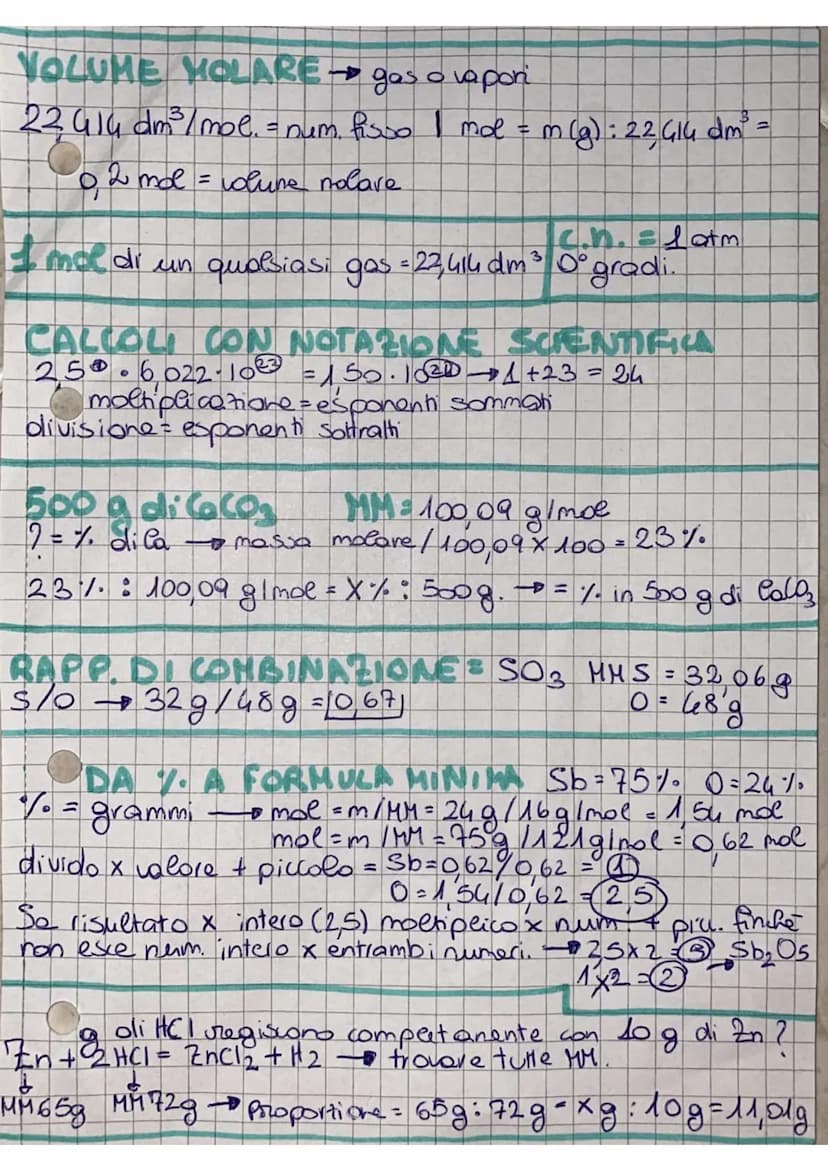 VOLUME MOLARE → gas o vapori
22,414 dm³/mol. = num. fisso | mol = m(g) : 22,414 dm³ =
0,2 mol = volume molare
1 mol di un qualsiasi gas = 22,414 dm³
c.n. = 1 atm
0° gradi.
CALCOLI CON NOTAZIONE SCIENTIFICA
2,5① · 6,022·10²³ = 1,50 · 10²⁴ → 1+23 = 24
moltiplicazione = esponenti sommati
divisione = esponenti sottratti
500 g di CaCO₃ MM = 100,09 g/mol
? = % di Ca → massa molare / 100,09 x 100 = 23%
23% : 100,09 g/mol = X% : 500g. → = % in 500 g di CaCO₃
RAPP. DI COMBINAZIONE = SO₃ MM S = 32,06g
S/O → 32g/48g = 0,67 O = 48g
DA % A FORMULA MINIMA Sb = 75% O = 24%
% = grammi → mol = m/MM = 24g/16g/mol = 1,54 mol
mol = m/MM = 75g/121g/mol = 0,62 mol
divido x valore + piccolo = Sb = 0,62/0,62 = ①
O = 1,54/0,62 = 2,5
Se risultato x intero (2,5) moltiplico x num. + piu. finché
non esce num. intero x entrambi numeri. → 2,5x2 = ⑤ → Sb₂O₅
1x2 = ②
g di HCl regiscono completamente con 10 g di Zn?
Zn + 2HCl = ZnCl₂ + H₂ → trovare tutte MM.
↓ ↓
MM 65g MM 72g → Proporzione = 65g : 72g = xg : 10g = 11,01g